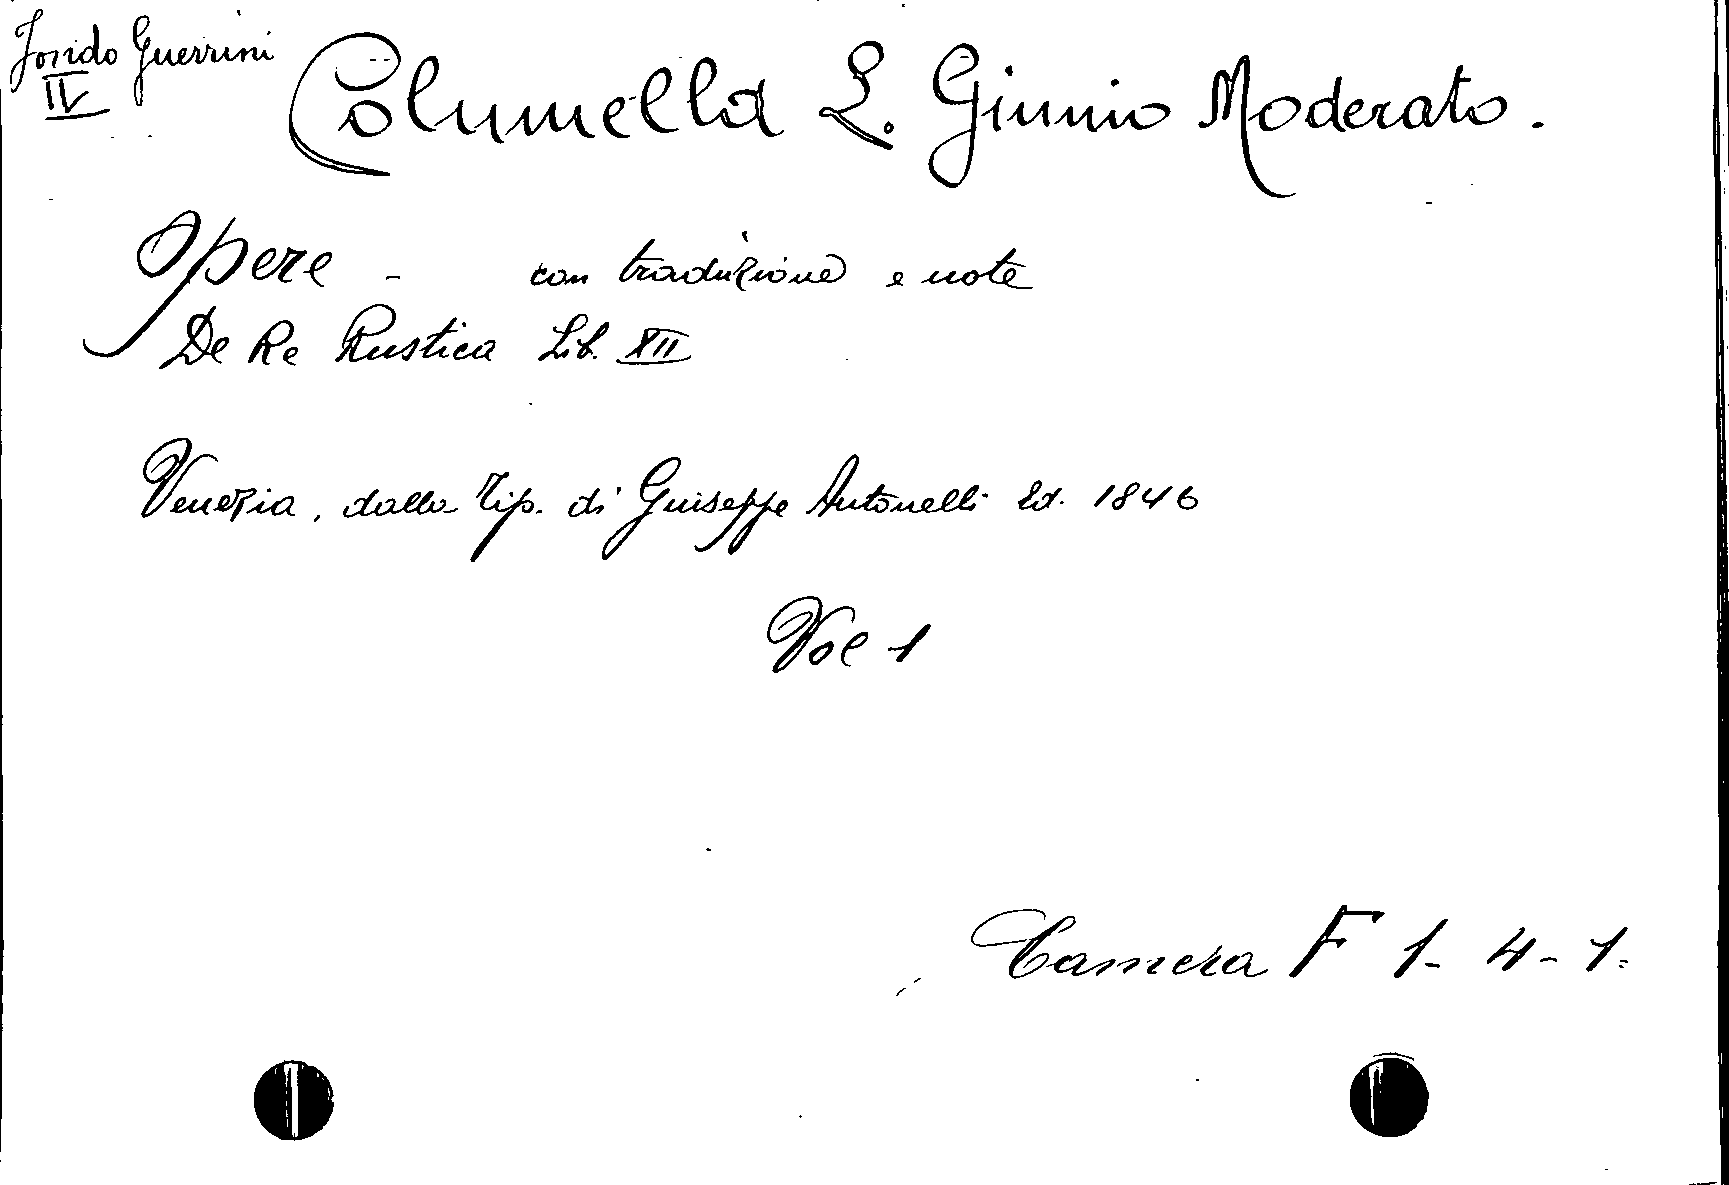 Fondo Guerrini
IV
Columella L. Giunio Moderato.
Opere - con traduzione e note
De Re Rustica Lib. XII
Venezia, dalla Tip. di Giuseppe Antonelli Ed. 1846
Vol 1
Camera F 1-4-1.